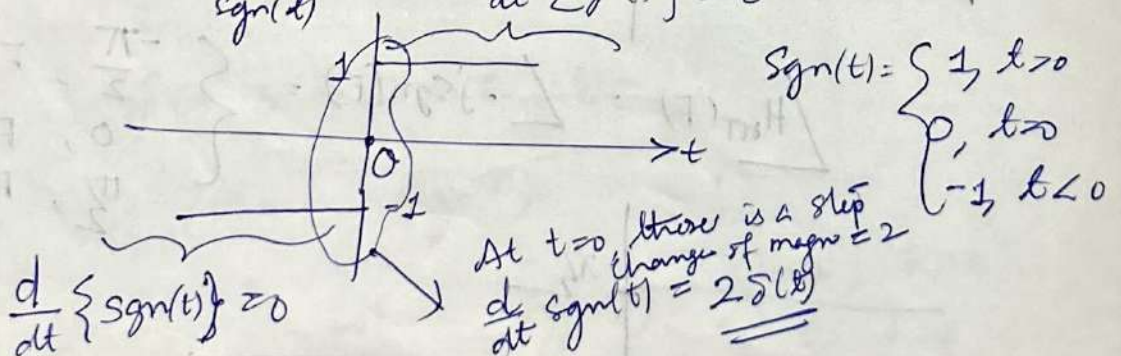 sgn(t)
1
Sgn(t) = { 1, t>0
0, t=0
-1, t<0
0
t
-1
d/dt {sgn(t)} = 0
At t=0, there is a step
changes of magn = 2
d/dt sgn(t) = 2δ(t)